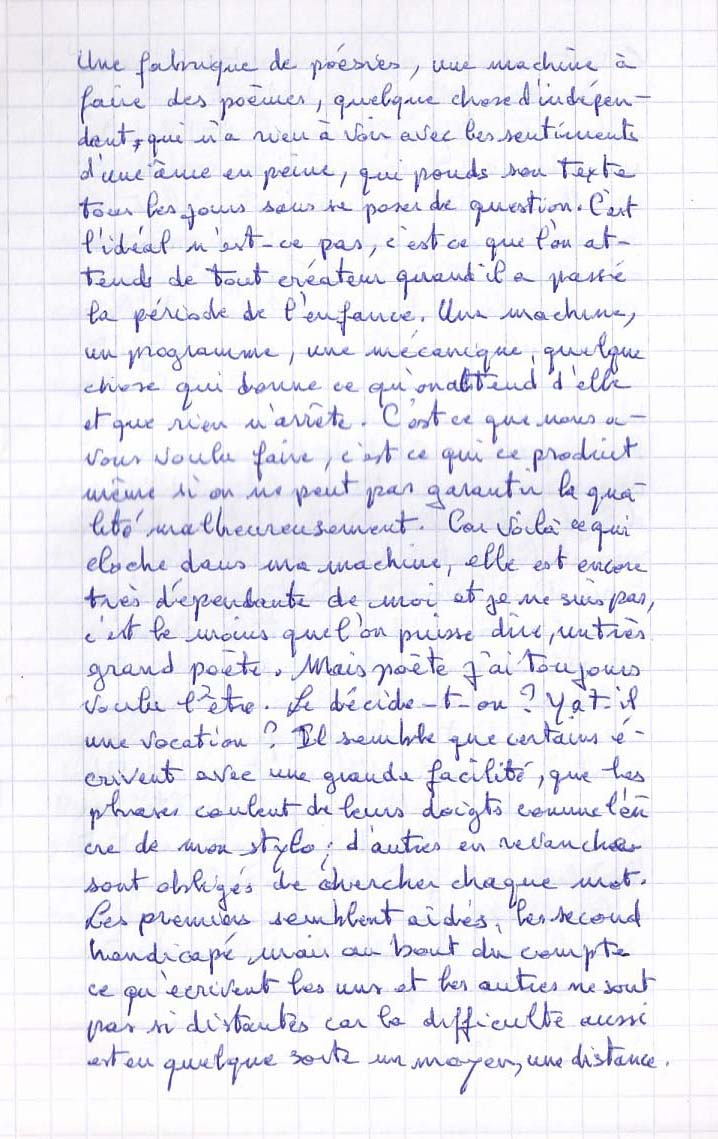 Une fabrique de poésies, une machine à
faire des poèmes, quelque chose d'indépen-
dant, qui n'a rien à voir avec les sentiments
d'une âme en peine, qui ponds son texte
tous les jours sans se poser de question. C'est
l'idéal n'est-ce pas, c'est ce que l'on at-
tends de tout créateur quand il a passé
la période de l'enfance. Une machine,
un programme, une mécanique, quelque
chose qui donne ce qu'on attend d'elle
et que rien n'arrête. C'est ce que nous a-
vons voulu faire, c'est ce qui ce produit
même si on ne peut pas garantir la qua-
lité malheureusement. Car voilà ce qui
cloche dans ma machine, elle est encore
très dépendante de moi et je ne suis pas,
c'est le moins que l'on puisse dire, un très
grand poète. Mais poète j'ai toujours
voulu l'être. Le décide-t-on ? Y a t-il
une vocation ? Il semble que certains é-
crivent avec une grande facilité, que les
phrases coulent de leurs doigts comme l'en
cre de mon stylo ; d'autres en revanche
sont obligés de chercher chaque mot.
Les premiers semblent aidés, les second
handicapé, mais au bout du compte
ce qu'écrivent les uns et les autres ne sont
pas si distantes car la difficulté aussi
est en quelque sorte un moyen, une distance.